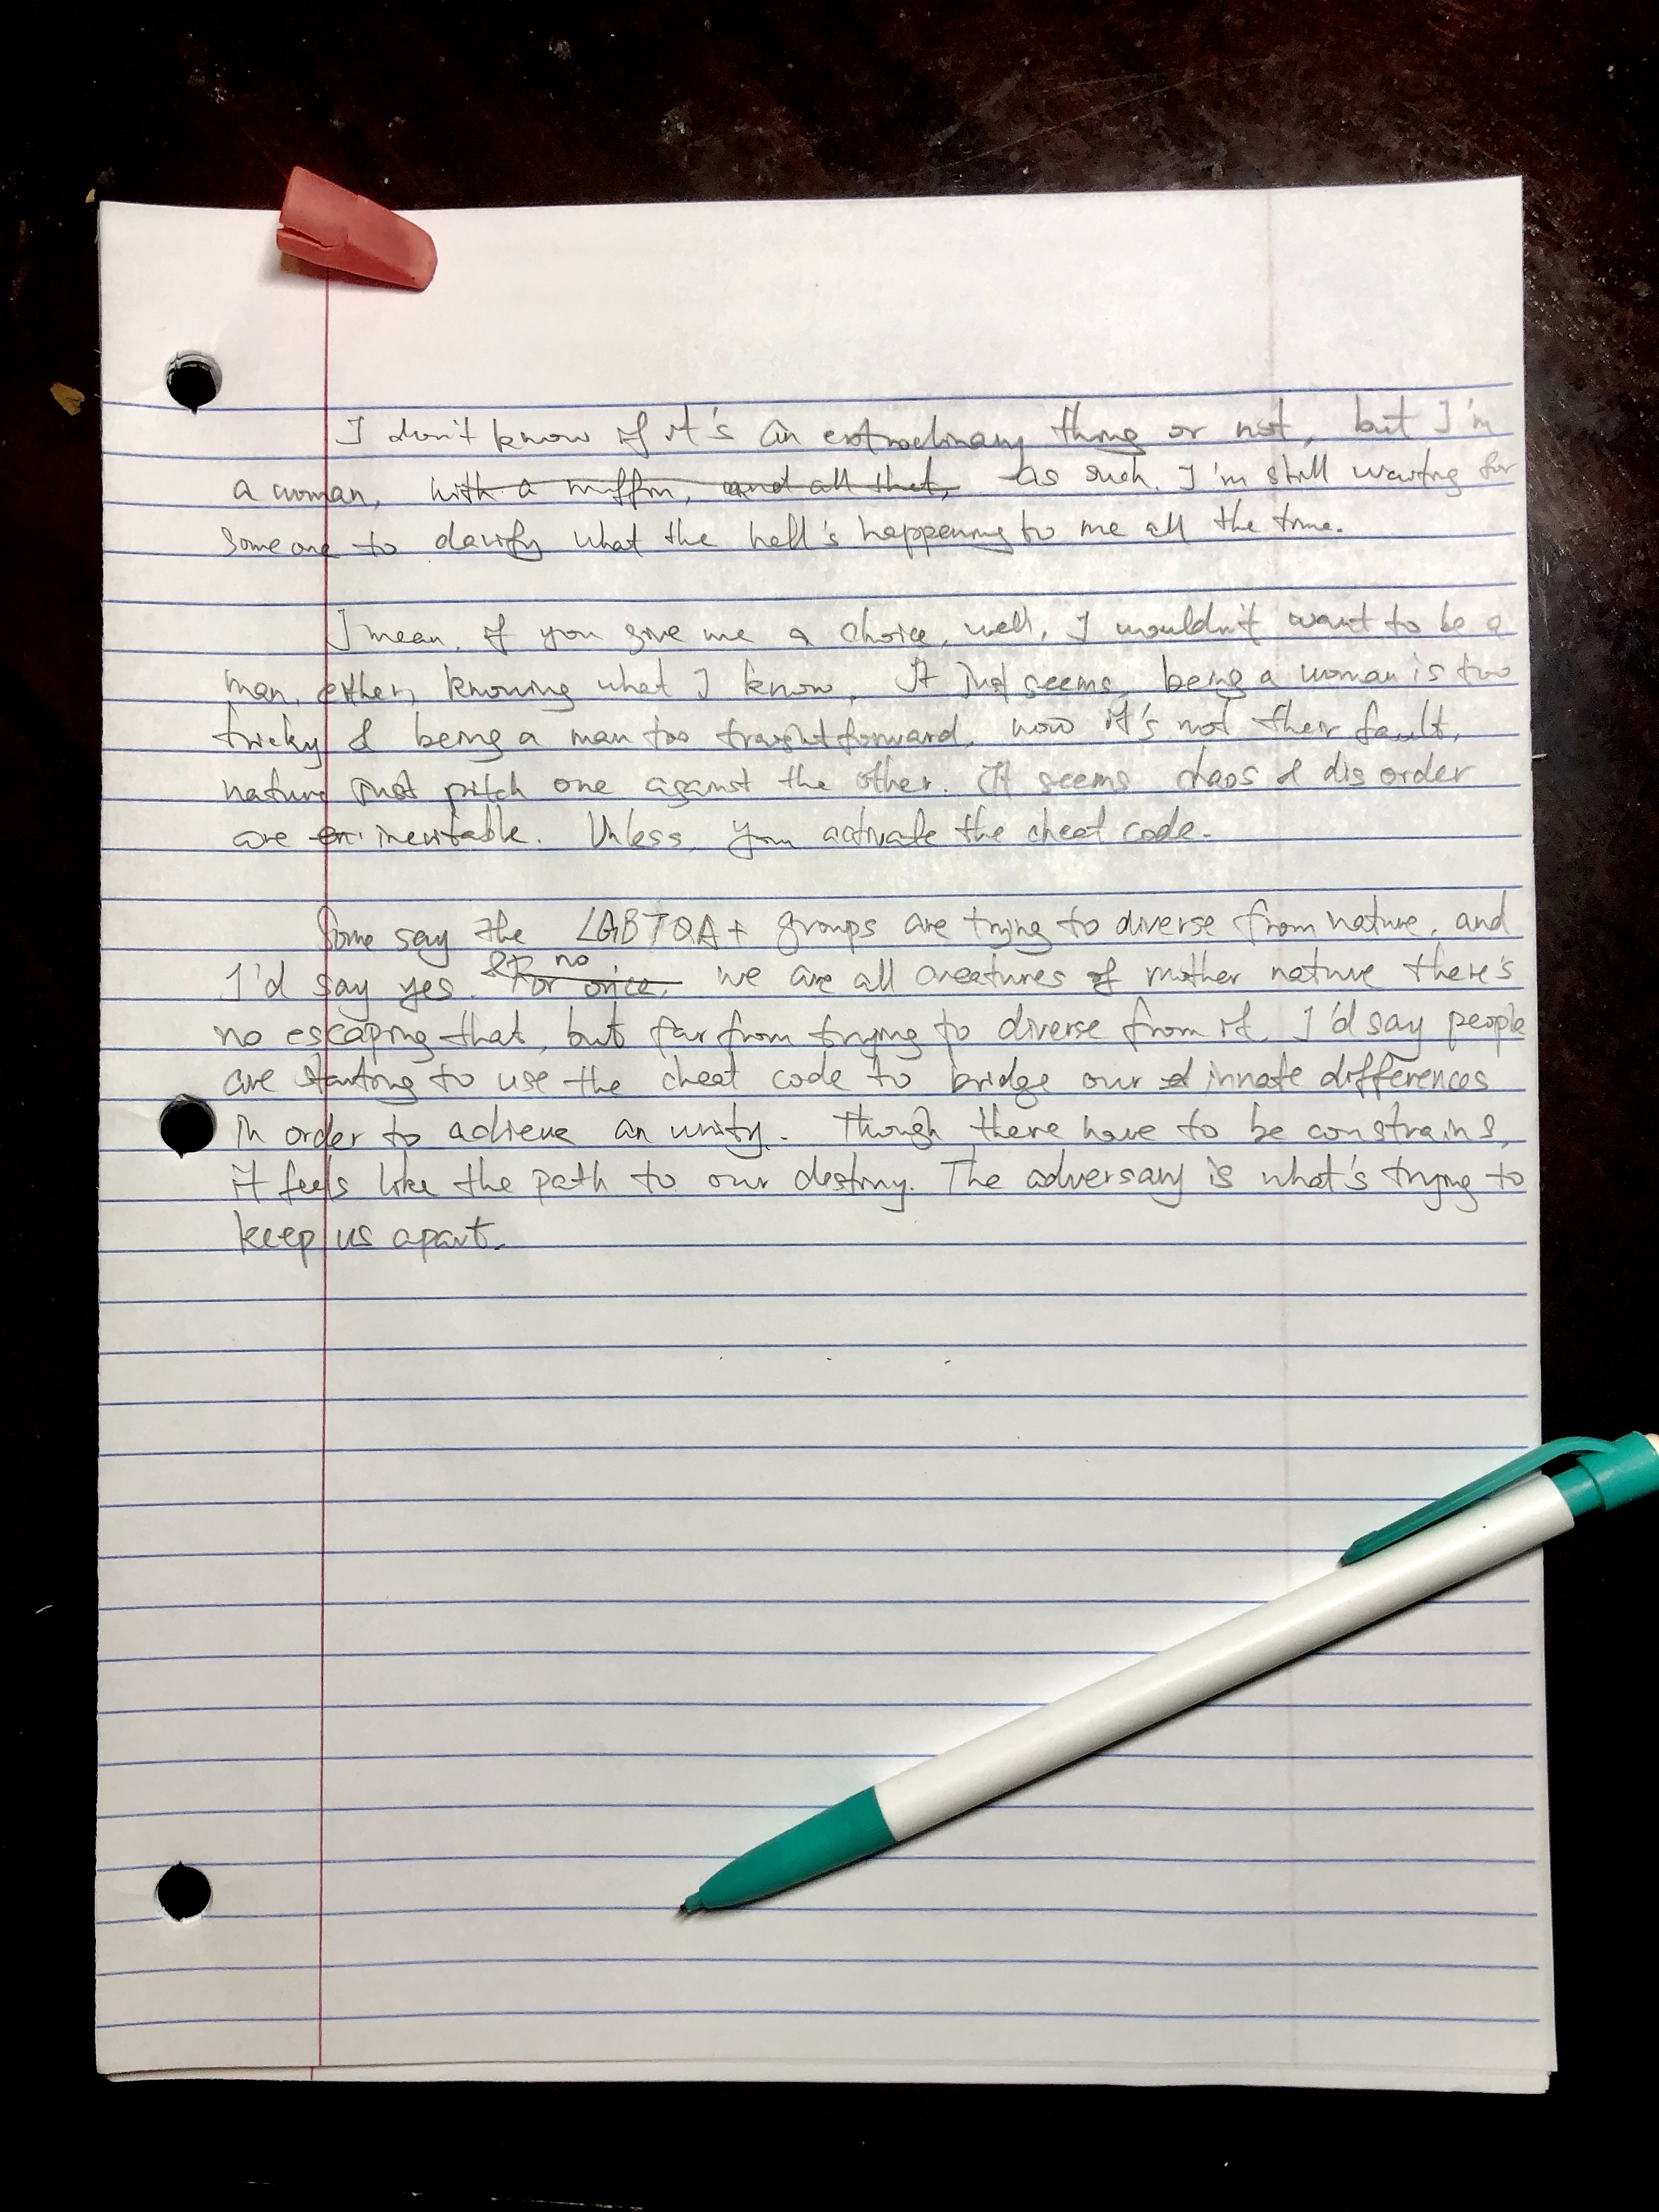 I don't know if it's an extraodinary thing or not, but I'm
a woman, with a muffin, and all that, as such. I'm still waiting for
someone to clarify what the hell's happening to me all the time.
I mean, if you give me a choice, well, I wouldn't want to be a
man, either, knowing what I know. It just seems, being a woman is too
tricky & being a man too traightforward, now it's not their fault,
nature just pitch one against the other. It seems chaos & disorder
are inevitable. Unless, you activate the cheat code.
Some say the LGBTQA+ groups are trying to diverse from nature, and
I'd say yes. & no For once, we are all creatures of mother nature there's
no escaping that, but far from trying to diverse from it, I'd say people
are starting to use the cheat code to bridge our innate differences
in order to achieve an unity. Though there have to be constrains,
it feels like the path to our destiny. The adversary is what's trying to
keep us apart.